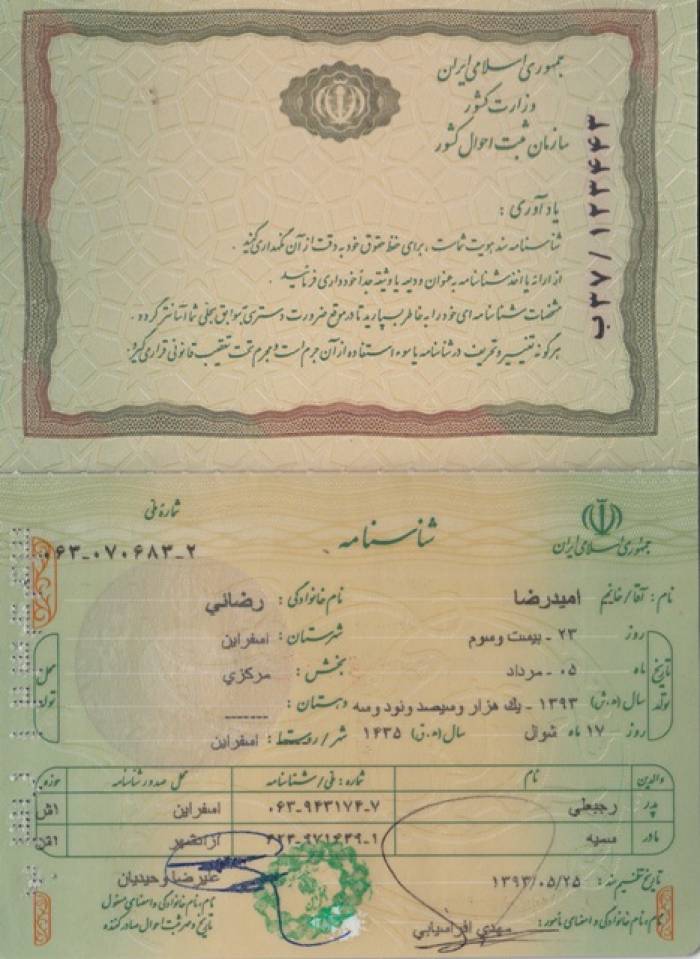 جمهوری اسلامی ایران
وزارت کشور
سازمان ثبت احوال کشور
ب۳۷/۱۲۳۴۴۳
یادآوری :
شناسنامه سند هویت شماست ، برای حفظ حقوق خود به دقت از آن نگهداری کنید .
از ارائه یا اخذ شناسنامه به عنوان ودیعه یا وثیقه جداً خودداری فرمائید .
مشخصات شناسنامه ای خود را به خاطر بسپارید تا در موقع ضرورت دسترسی به سوابق سجلی شما آسانتر گردد .
هرگونه تغییر و تحریف در شناسنامه یا سوء استفاده از آن جرم است و مجرم تحت تعقیب قانونی قرار می گیرد.
جمهوری اسلامی ایران
شناسنامه
شماره ملی
۰۶۳-۰۷۰۶۸۳-۲
نام : آقا/خانم امیدرضا نام خانوادگی : رضائي
تاریخ تولد
روز ۲۳ - بیست وسوم
ماه ۰۵ - مرداد
سال (ه.ش) ۱۳۹۳ - یك هزار وسیصد ونود وسه
روز ۱۷ ماه شوال سال (ه.ق) ۱۴۳۵
محل تولد
شهرستان : اسفراین
بخش : مرکزي
دهستان : -------
شهر/روستا : اسفراین
والدین نام شماره : ملی/شناسنامه محل صدور شناسنامه حوزه
پدر رجبعلي ۰۶۳-۹۴۳۱۷۴-۷ اسفراین
مادر ازادشهر
تاریخ تنظیم سند : ۱۳۹۳/۰۵/۲۵
نام، نام خانوادگی و امضای مأمور : مهدي افراسیابي
علیرضا وحیدیان
نام، نام خانوادگی و امضای مسئول
تاریخ و مهر ثبت احوال صادر کننده